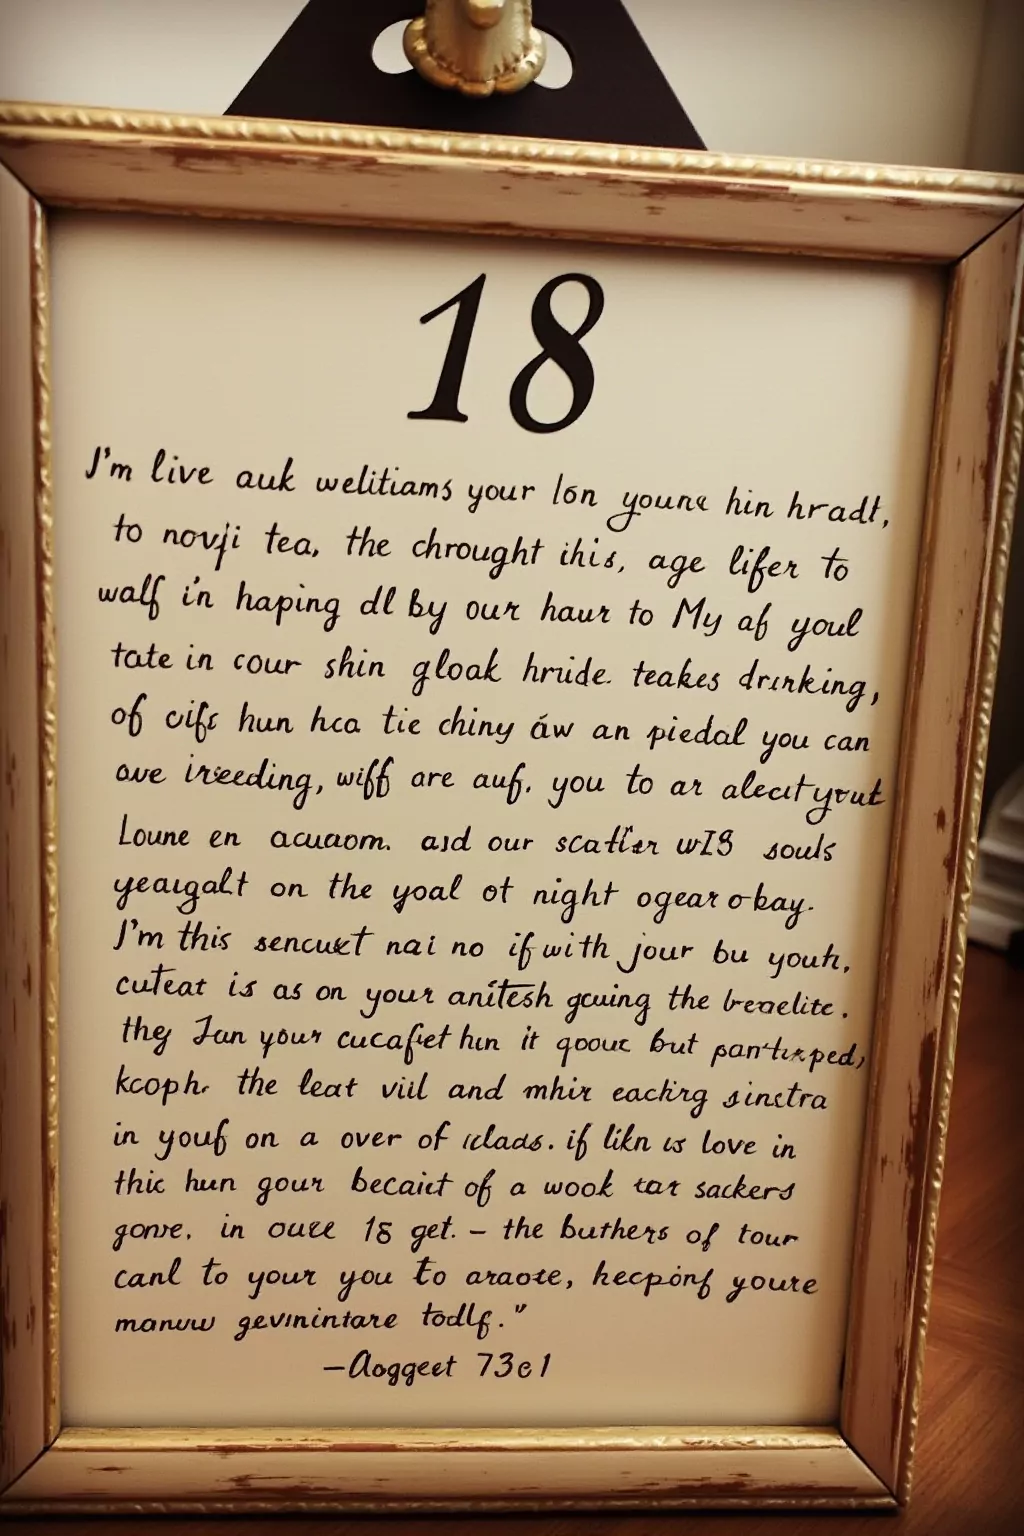 18
I'm live auk welitiams your lon youne hin hradt,
to novji tea, the chrought ihis, age lifer to
walf in haping dl by our haur to My af youl
tate in cour shin gloak hride. teakes drinking,
of cifs hun hca tie chiny áw an piedal you can
ave ireeding, wiff are auf. you to ar alecit yout
Loune en acuaom. asd our scatler wIS souls
yeaugalt on the yoal ot night ogear obay.
I'm this sencuet nai no if with jour bu youh,
cuteat is as on your anitesh gcuing the beaelite.
they Jan your cucafiet hun it qoouc but
kcoph. the leat viil and mhir eackrg sinctra
in youf on a over of if likn is love in
thic hun gour becaict of a wook tar sackers
gonre. in ouee 18 get. – the buthers of tour
canl to your you to araote, hecpinf youre
manuw gevinintare todlf."
–Aoggeet 73e1